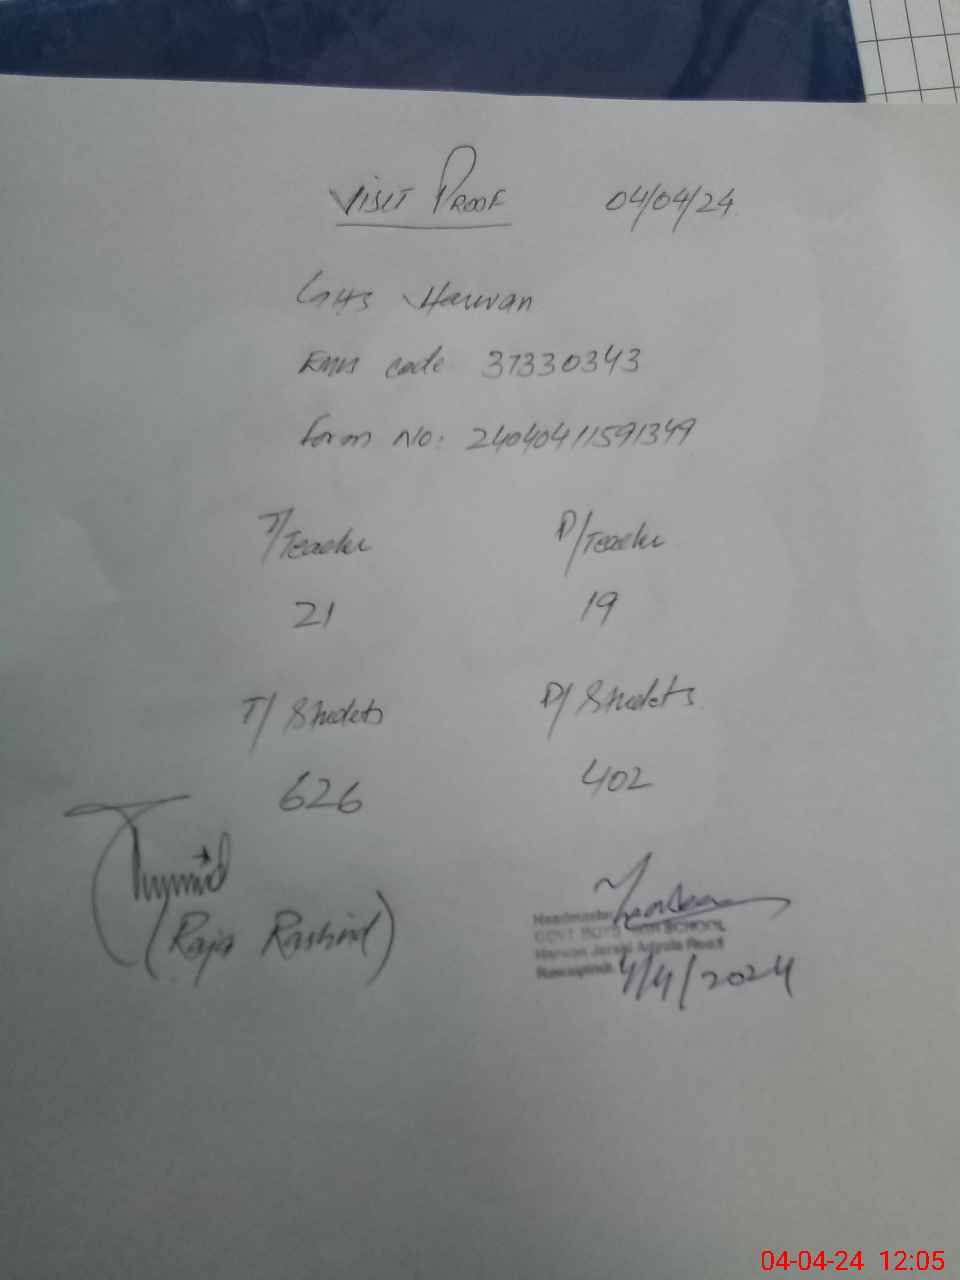 VISIT PROOF 04/04/24
GHS Harwan
EMIS code 37330343
Form No: 24040411591349
T/Teacher P/Teacher
21 19
T/ Studets P/ Studets
626 402
(Raja Rashid)
Headmaster
GOVT BOYS HIGH SCHOOL
Harwan Jarahi Adyala Road
Rawalpindi 4/4/2024
04-04-24 12:05